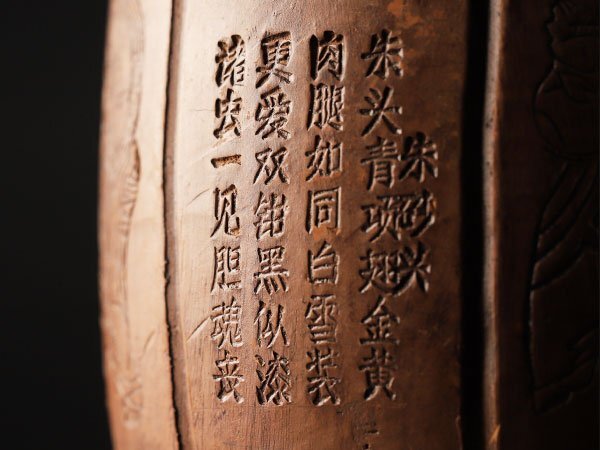 朱砂兴
朱头青项翅金黄
肉腿如同白雪装
更爱双钳黑似漆
诸虫一见胆魂丧